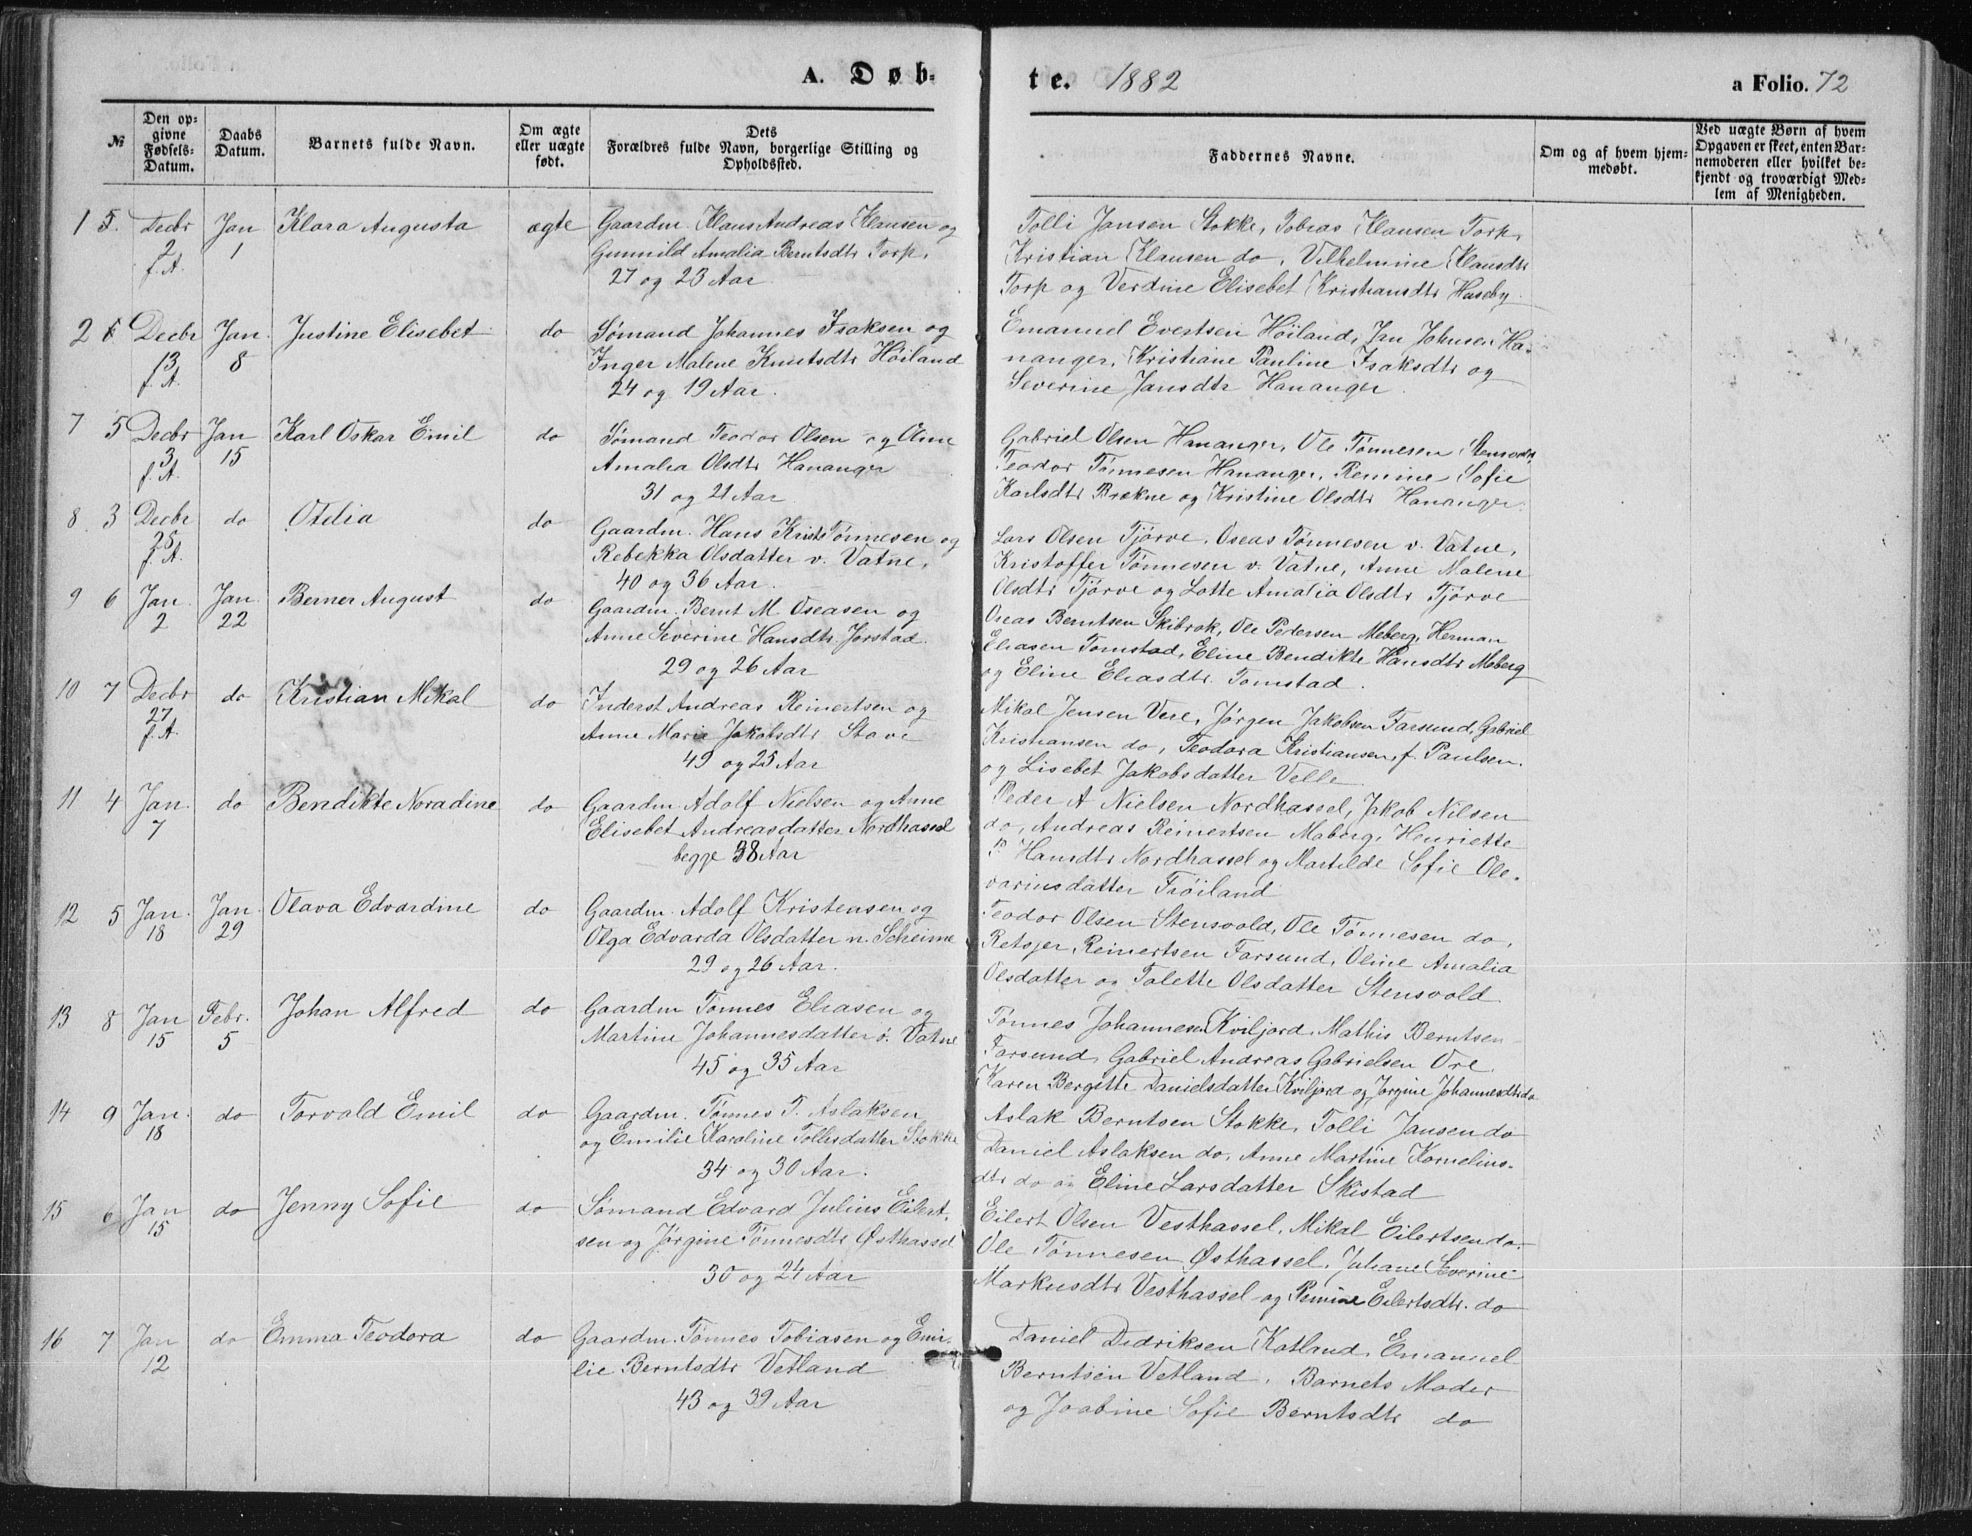 A. Døb-
te. 1882
a Folio. 72
№
Den op-
givne
Fødsels-
Datum.
Daabs
Datum.
Barnets fulde Navn.
Om ægte
eller uægte
født.
Dets
Forældres fulde Navn, borgerlige Stilling og
Opholdssted.
Faddernes Navne.
Om og af hvem hjem-
medøbt.
Ved uægte Børn af hvem
Opgaven er skeet, enten Bar-
nemoderen eller hvilket be-
kjendt og troværdigt Med-
lem af Menigheden.
1 5. Decbr 2 f. A. Jan 1 Klara Augusta ægte
Gaardm. Klaus Andreas Klausen og
Gunnild Amalia Berntsdtr Torp.
27 og 23 Aar
Tolli Jansen Stokke, Tobias Klausen Torp,
Kristian Klausen do, Vilhelmine Klausdtr
Torp og Verdine Elisebet Kristiansdtr Huseby
2 Decbr 13 f. A. Jan. 8 Justine Elisebet do
Sømand Johannes Isaksen og
Inger Malene Knutsdtr Höiland
24 og 19 Aar.
Emanuel Evertsen Höiland, Jan Johnsen Ha-
nanger, Kristiane Pauline Isaksdtr og
Severine Jansdtr Hananger.
7 5 Decbr 3 f. A. Jan 15 Karl Oskar Emil do
Sømand Teodor Olsen og Oline
Amalia Olsdtr Hananger
31 og 21 Aar
Gabriel Olsen Hananger, Ole Tønnesen Stensvold,
Teodor Tønnesen Hananger, Remine Sofie
Karlsdtr Brekne og Kristine Olsdtr Hananger.
8 3 Decbr 28 f. A. do Otelia do
Gaardm. Hans Krist. Tønnesen og
Rebekka Olsdatter v. Vatne,
40 og 36 Aar.
Lars Olsen Tjörve, Oseas Tønnesen v. Vatne,
Kristoffer Tønnesen v. Vatne, Anne Malene
Olsdtr Tjörve og Lotte Amalia Olsdtr Tjörve
9 6 Jan 2 Jan. 22 Berner August do
Gaardm. Bernt M. Oseasen og
Anne Severine Hansdtr. Jørstad
29 og 26 Aar
Oseas Berntsen Skibrak, Ole Pedersen Meberg, Herman
Eliasen Tomstad, Eline Bendikte Hansdtr Meberg
og Eline Eliasdtr. Tomstad.
10 7 Decbr 27 f. A. do Kristian Mikal do
Inderst Andreas Reinertsen og
Anne Marie Jakobsdtr Stave
49 og 25 Aar
Mikal Jensen Vere, Jørgen Jakobsen Farsund, Gabriel
Kristiansen do, Teodora Kristiansen, f. Paulsen
og Lisebet Jakobsdatter Velle
11 4 Jan. 7 do Bendikte Noradine do
Gaardm Adolf Nielsen og Anne
Elisebet Andreasdatter Nordhassel
begge 38 Aar
Peder A Nielsen Nordhassel, Jakob Nilsen
do, Andreas Reinertsen Maberg, Henriette
P. Hansdtr Nordhassel og Martilde Sofie Ole-
variusdatter Fröiland
12 5 Jan. 18 Jan. 29 Olava Edvardine do
Gaardm. Adolf Kristensen og
Olga Edvarda Olsdatter n. Skeime
29 og 26 Aar.
Teodor Olsen Stensvold, Ole Tønnesen do,
Retsjer Reinertsen Farsund, Oline Amalia
Olsdatter og Talette Olsdatter Stensvold
13 8 Jan 15 Febr. 5 Johan Alfred do
Gaardm Tønnes Eliasen og
Martine Johannesdatter ö. Vatne
45 og 35 Aar
Tønnes Johannesen Kviljord, Mathis Berntsen
Farsund, Gabriel Andreas Gabrielsen Ore
Karen Bergitte Danielsdatter Kviljord og Jørgine Johannesdtr do
14 9 Jan. 18 do Torvald Emil do
Gaardm. Tønnes T. Aslaksen
og Emilie Karoline Tollisdatter Stokke
34 og 30 Aar.
Aslak Berntsen Stokke, Tolli Jansen do
Daniel Aslaksen do, Anne Martine Kornelius-
dtr do og Eline Larsdatter Skistad
15 6 Jan 15 do Jenny Sofie do
Sømand Edvard Julius Eilert-
sen og Jørgine Tønnesdtr Østhassel
30 og 24 Aar
Eilert Olsen Vesthassel, Mikal Eilertsen do.
Ole Tønnesen Østhassel, Juliane Severine
Markusdtr Vesthassel og Remine Eilertsdtr. do
16 7 Jan 12 do Emma Teodora do
Gaardm. Tønnes Tobiasen og Emi-
lie Berntsdtr Vetland
43 og 39 Aar
Daniel Didriksen Katland, Emanuel
Berntsen Vetland. Barnets Moder
og Joabine Sofie Berntsdtr do